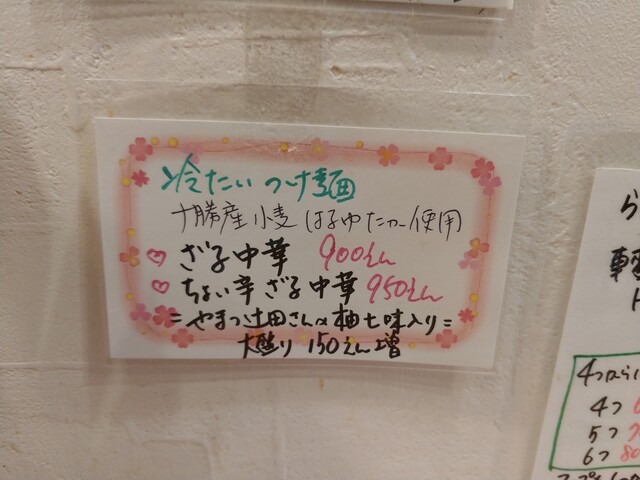 冷たいつけ麺
十勝産小麦はるゆたか使用
♡ ざる中華 900えん
♡ ちょい辛ざる中華 950えん
=やまつ辻田さんの柚七味入り=
大盛り 150えん増
ら
4つ
5つ
6つ 80